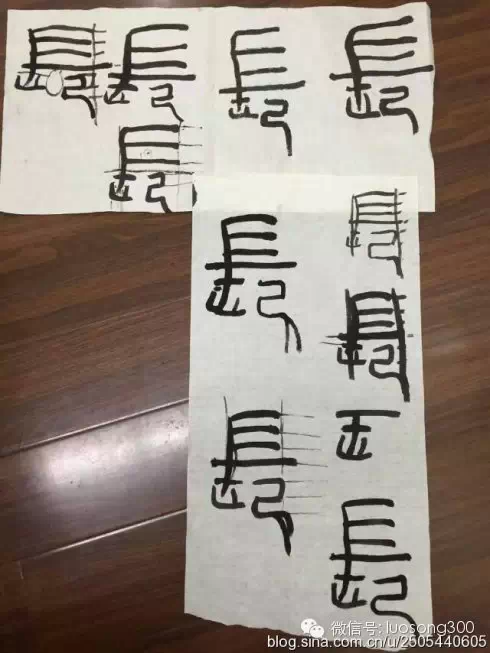 長 長 長 長
長
長
長
長
長
長
微信号: luosong300
blog.sina.com.cn/u/2505440605